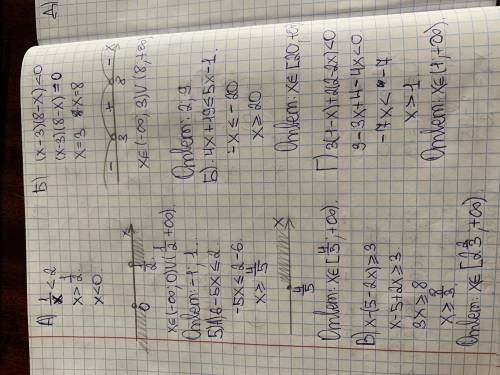 А) 1/x < 2
x > 1/2
x < 0
0 1/2 x
x ∈ (-∞; 0) ∪ (1/2; +∞).
Ответ: -1; 1.
5) А) 6-5x ≤ 2
-5x ≤ 2-6
x ≥ 4/5
4/5 x
Ответ: x ∈ [4/5; +∞).
В) x-(5-2x) ≥ 3
x-5+2x ≥ 3
3x ≥ 8
x ≥ 8/3
Ответ: x ∈ [2 2/3; +∞)
Б) (x-3)(8-x) < 0
(x-3)(8-x) = 0
x = 3 x = 8
- 3 + 8 - x
x ∈ (-∞; 3) ∪ (8; +∞)
Ответ: 2; 9.
Б) 4x+19 ≤ 5x-1
-x ≤ -20
x ≥ 20
Ответ: x ∈ [20; +∞)
Г) 3(1-x)+2(2-2x) < 0
3-3x+4-4x < 0
-7x < -7
x > 1
Ответ: x ∈ (1; +∞).